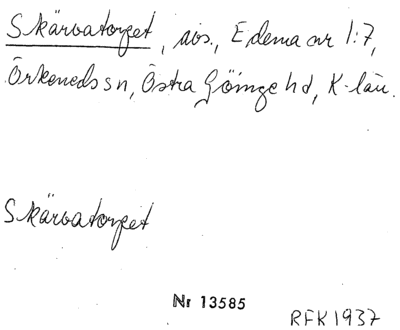 Skärvatorpet, avs., Edema nr 1:7,
Örkeneds sn, Östra Göinge hd, K-län.
Skärvatorpet
Nr 13585
RFK 1937